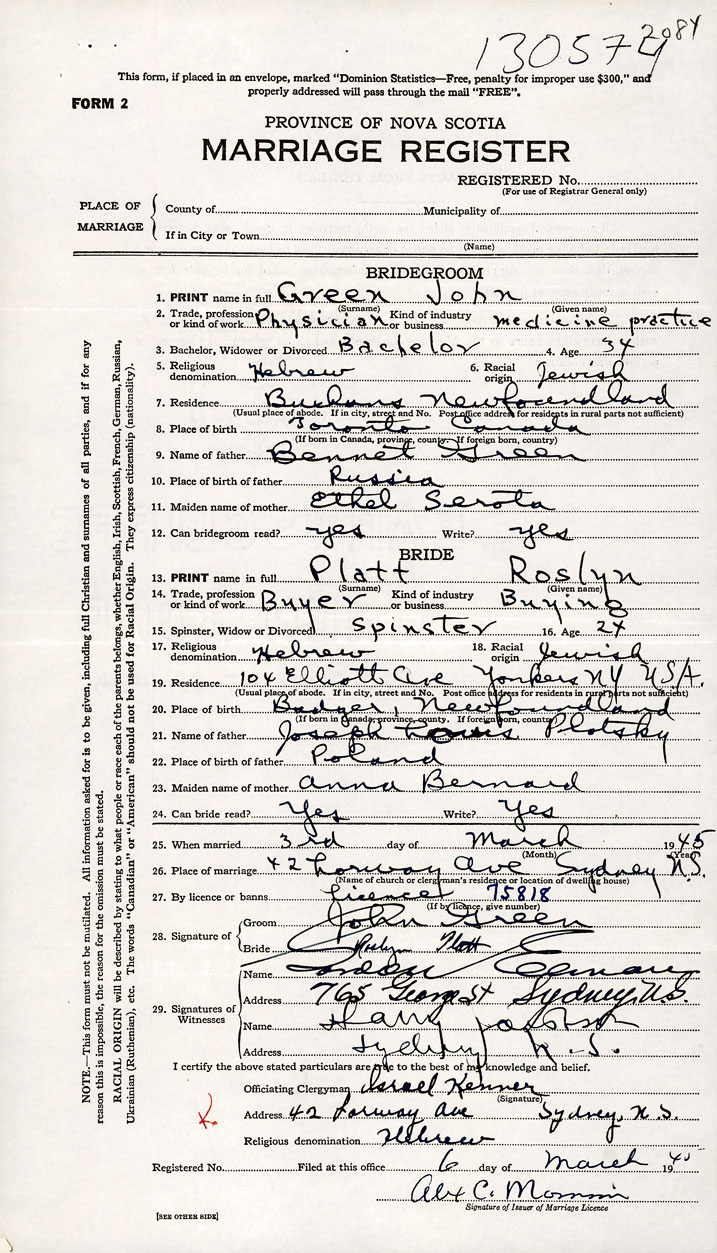 130574 2084
This form, if placed in an envelope, marked "Dominion Statistics—Free, penalty for improper use $300," and
properly addressed will pass through the mail "FREE".
FORM 2
PROVINCE OF NOVA SCOTIA
MARRIAGE REGISTER
REGISTERED No.
(For use of Registrar General only)
PLACE OF MARRIAGE
County of Municipality of
If in City or Town
(Name)
BRIDEGROOM
1. PRINT name in full Green John
(Surname) (Given name)
2. Trade, profession or kind of work Physician Kind of industry or business medicine practice
3. Bachelor, Widower or Divorced Bachelor 4. Age 34
5. Religious denomination Hebrew 6. Racial origin Jewish
7. Residence Buchans Newfoundland
(Usual place of abode. If in city, street and No. Post office address for residents in rural parts not sufficient)
8. Place of birth Toronto Canada
(If born in Canada, province, county. If foreign born, country)
9. Name of father Bennet Green
10. Place of birth of father Russia
11. Maiden name of mother Ethel Serota
12. Can bridegroom read? yes Write? yes
BRIDE
13. PRINT name in full Platt Roslyn
(Surname) (Given name)
14. Trade, profession or kind of work Buyer Kind of industry or business Buying
15. Spinster, Widow or Divorced Spinster 16. Age 24
17. Religious denomination Hebrew 18. Racial origin Jewish
19. Residence 104 Elliott Ave Yonkers NY USA.
(Usual place of abode. If in city, street and No. Post office address for residents in rural parts not sufficient)
20. Place of birth Badger, Newfoundland
(If born in Canada, province, county. If foreign born, country)
21. Name of father Joseph Louis Plotsky
22. Place of birth of father Poland
23. Maiden name of mother Anna Bernard
24. Can bride read? Yes Write? Yes
25. When married 3rd day of March 1945
(Month) (Year)
26. Place of marriage 42 Lorway Ave Sydney N.S.
(Name of church or clergyman's residence or location of dwelling house)
27. By licence or banns Licence 75818
(If by licence, give number)
28. Signature of
Groom John Green
Bride Roslyn Platt
29. Signatures of Witnesses
Name
Address 765 George St Sydney, N.S.
Name Harry
Address Sydney N.S.
I certify the above stated particulars are true to the best of my knowledge and belief.
Officiating Clergyman Israel Kenner
(Signature)
Address 42 Lorway Ave Sydney, N.S.
Religious denomination Hebrew
Registered No. Filed at this office 6 day of March 1945
Alex C.
Signature of Issuer of Marriage Licence
[SEE OTHER SIDE]
NOTE.—This form must not be mutilated. All information asked for is to be given, including full Christian and surnames of all parties, and if for any
reason this is impossible, the reason for the omission must be stated.
RACIAL ORIGIN will be described by stating to what people or race each of the parents belongs, whether English, Irish, Scottish, French, German, Russian,
Ukrainian (Ruthenian), etc. The words "Canadian" or "American" should not be used for Racial Origin. They express citizenship (nationality).